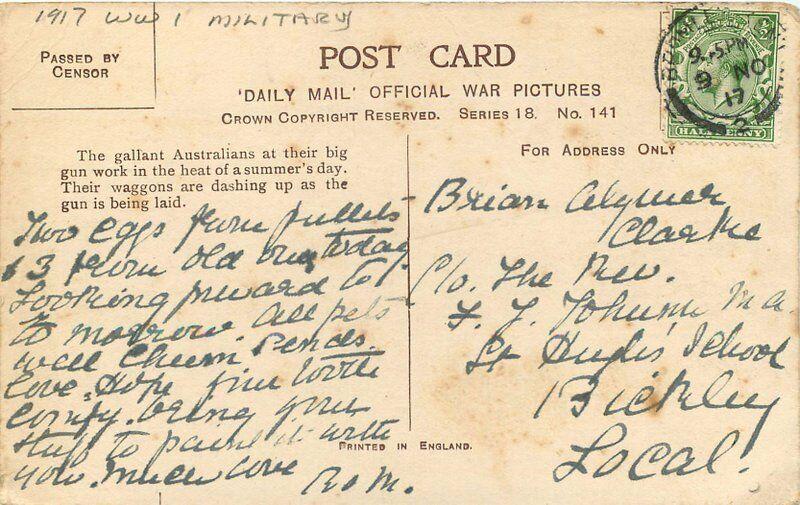 1917 WW 1 MILITARY
PASSED BY
CENSOR
POST CARD
'DAILY MAIL' OFFICIAL WAR PICTURES
CROWN COPYRIGHT RESERVED. SERIES 18. No. 141
9.15PM
9 NO
17
HALFPENNY
The gallant Australians at their big
gun work in the heat of a summer's day.
Their waggons are dashing up as the
gun is being laid.
FOR ADDRESS ONLY
Two eggs from pullets
& 3 from old ones today
Looking forward to
to morrow. All pets
well Chum sends
love. Hope your tooth
comfy. bring your
stuff to paint with
you. Much love
Brian Aylmer
Clarke
C/o. The Rev.
F. J. Johnson M.A.
St Hugh's School
Bickley
Local.
PRINTED IN ENGLAND.